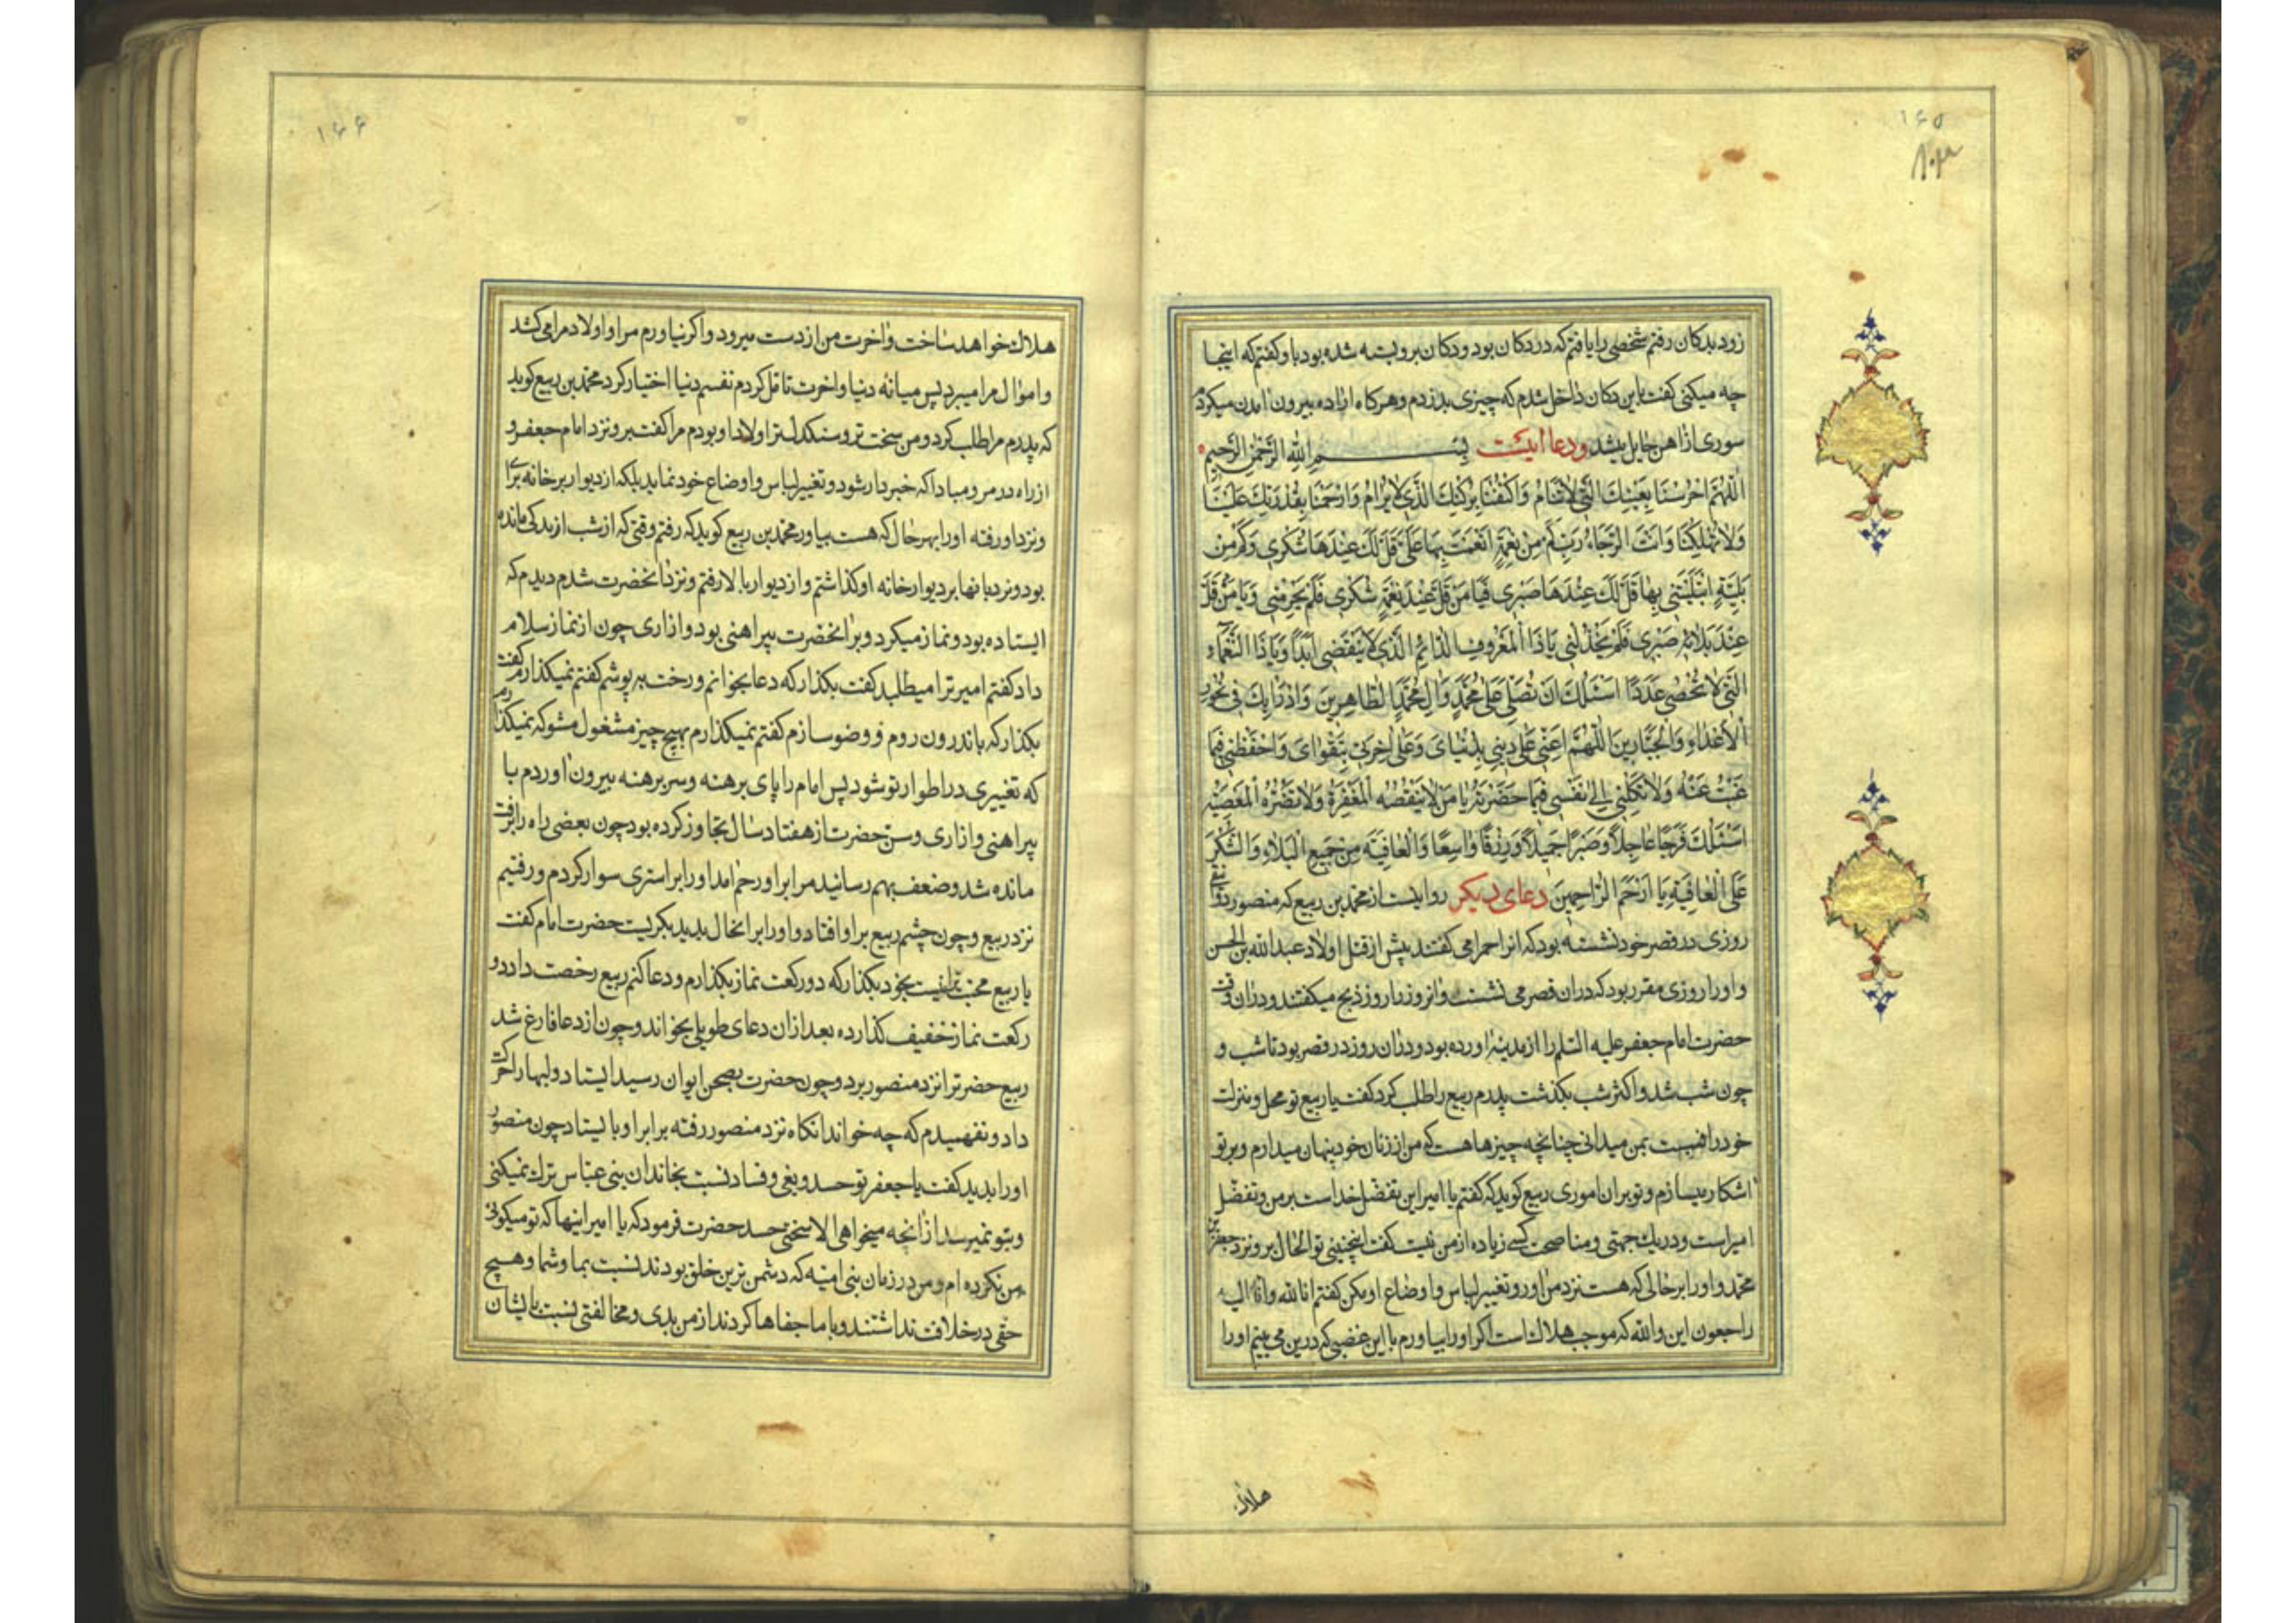 ۱۶۵
زود بدکان رفتم شخصی را یافتم که در دکان بود و دکان برو بسته شده بود باو گفتم که اینجا
چه میکنی گفت باین دکان داخل شدم که چیزی بدزدم و هرکاه اراده بیرون امدن میکردم
سوری از اهن حایل میشد ودعا اینست بِسْمِ اللهِ الرَّحْمٰنِ الرَّحِيمِ
اَللّٰهُمَّ احْرُسْنَا بِعَيْنِكَ الَّتِي لَاتَنَامُ وَاكْنُفْنَا بِرُكْنِكَ الَّذِي لَايُرَامُ وَارْحَمْنَا بِقُدْرَتِكَ عَلَيْنَا
وَلَاتُهْلِكْنَا وَاَنْتَ الرَّجَاءُ رَبِّ كَمْ مِنْ نِعْمَةٍ اَنْعَمْتَ بِهَا عَلَيَّ قَلَّ لَكَ عِنْدَهَا شُكْرِي وَكَمْ مِنْ
بَلِيَّةٍ ابْتَلَيْتَنِي بِهَا قَلَّ لَكَ عِنْدَهَا صَبْرِي فَيَا مَنْ قَلَّ عِنْدَ نِعْمَتِهِ شُكْرِي فَلَمْ يَحْرِمْنِي وَيَا مَنْ قَلَّ
عِنْدَ بَلَائِهِ صَبْرِي فَلَمْ يَخْذُلْنِي يَاذَا الْمَعْرُوفِ الدَّائِمِ الَّذِي لَايَنْقَضِي اَبَدًا وَيَاذَا النَّعْمَاءِ
الَّتِي لَاتُحْصٰى عَدَدًا اَسْئَلُكَ اَنْ تُصَلِّيَ عَلٰى مُحَمَّدٍ وَاٰلِ مُحَمَّدٍ الطَّاهِرِينَ وَاَدْرَاُ بِكَ فِي نُحُورِ
الْاَعْدَاءِ وَالْجَبَّارِينَ اَللّٰهُمَّ اَعِنِّي عَلٰى دِينِي بِدُنْيَايَ وَعَلٰى اٰخِرَتِي بِتَقْوَايَ وَاحْفَظْنِي فِيمَا
غِبْتُ عَنْهُ وَلَاتَكِلْنِي اِلٰى نَفْسِي فِيمَا حَضَرْتُهُ يَا مَنْ لَاتَنْقُصُهُ الْمَغْفِرَةُ وَلَاتَضُرُّهُ الْمَعْصِيَةُ
اَسْئَلُكَ فَرَجًا عَاجِلًا وَصَبْرًا جَمِيلًا وَرِزْقًا وَاسِعًا وَالْعَافِيَةَ مِنْ جَمِيعِ الْبَلَاءِ وَالشُّكْرَ
عَلَى الْعَافِيَةِ يَا اَرْحَمَ الرَّاحِمِينَ دعای دیکر روایتست از محمد بن ربیع که منصور دوانقی
روزی در قصر خود نشسته بود که انرا حمرا می گفتند پیش از قتل اولاد عبدالله بن الحسن
و اورا روزی مقرر بود که دران قصر می نشست و انروز را روز ذبح میکفتند و دران وقت
حضرت امام جعفر علیه السلم را از مدینه اورده بود و دران روز در قصر بود تا شب و
چون شب شد و اکثر شب بکذشت پدرم ربیع را طلب کرد گفت یا ربیع تو محل و منزلت
خود را نسبت بمن میدانی چنانچه چیزها هست که من از زنان خود پنهان میدارم و بر تو
اشکار میسازم و تو بران اموری ربیع کوید که گفتم یا امیر این تفضل خداست بر من و تفضل
امیر است و در یك جهتی و مناصحت کسی زیاده از من نیست گفت اینچنینی تو الحال برو نزد جعفر بن
محمد و اورا بر حالی که هست نزد من اور و تغییر لباس و اوضاع او مکن گفتم انا لله وانا الیه
راجعون این والله که موجب هلاك است اکر اورا بیاورم با این غضبی که درین می بینم اورا
هلاك
۱۶۶
هلاك خواهد ساخت واخرت من از دست میرود و اکر نیاورم مرا و اولاد مرا می کشد
و اموال مرا میبرد پس میانه دنیا و اخرت تامّل کردم نفسم دنیا اختیار کرد محمد بن ربیع کوید
که پدرم مرا طلب کرد و من سخت تر و سنکدلتر اولاد او بودم مرا گفت برو نزد امام جعفر و
از راه در مرو مبادا که خبردار شود و تغییر لباس و اوضاع خود نماید بلکه از دیوار بر خانه برای
و نزد او رفته اورا بهر حال که هست بیاور محمد بن ربیع کوید که رفتم وقتی که از شب اندکی مانده
بود و نردبانها بر دیوار خانه او کذاشتم و از دیوار بالا رفتم و نزد انحضرت شدم دیدم که
ایستاده بود و نماز میکرد و بر انحضرت پیراهنی بود و ازاری چون از نماز سلام
داد گفتم امیر ترا میطلبد کفت بکذار که دعا بخوانم و رخت بپوشم گفتم نمیکذارم گفت
بکذار که باندرون روم و وضو سازم گفتم نمیکذارم بهیچ چیز مشغول مشو که نمیکذارم
که تغییری در اطوار تو شود پس امام را پای برهنه و سر برهنه بیرون اوردم با
پیراهنی و ازاری و سنّ حضرت از هفتاد سال تجاوز کرده بود چون بعضی راه را برفت
مانده شد و ضعف بهم رسانید مرا بر او رحم امد اورا بر استری سوار کردم و رفتیم
نزد ربیع و چون چشم ربیع بر او افتاد و اورا بر انحال بدید بکریست حضرت امام گفت
یا ربیع محبت ترا نیست بخود بکذار که دو رکعت نماز بکذارم و دعا کنم ربیع رخصت داد دو
رکعت نماز خفیف کذارده بعد ازان دعای طویلی بخواند و چون از دعا فارغ شد
ربیع حضرترا نزد منصور برد و چون حضرت بصحن ایوان رسید ایستاد و لبها را حرکت
داد و نفهمیدم که چه خواند انکاه نزد منصور رفته برابر او بایستاد چون منصور
اورا بدید گفت یا جعفر تو حسد و بغی و فساد نسبت بخاندان بنی عباس ترك نمیکنی
و بتو نمیرسد از انچه میخواهی الا سختی حسد حضرت فرمود که یا امیر اینها که تو میکوئی
من نکرده ام و من در زمان بنی امیّه که دشمن ترین خلق بودند نسبت بما و شما و هیچ
حقی در خلافت نداشتند و با ما جفاها کردند از من بدی و مخالفتی نسبت بایشان